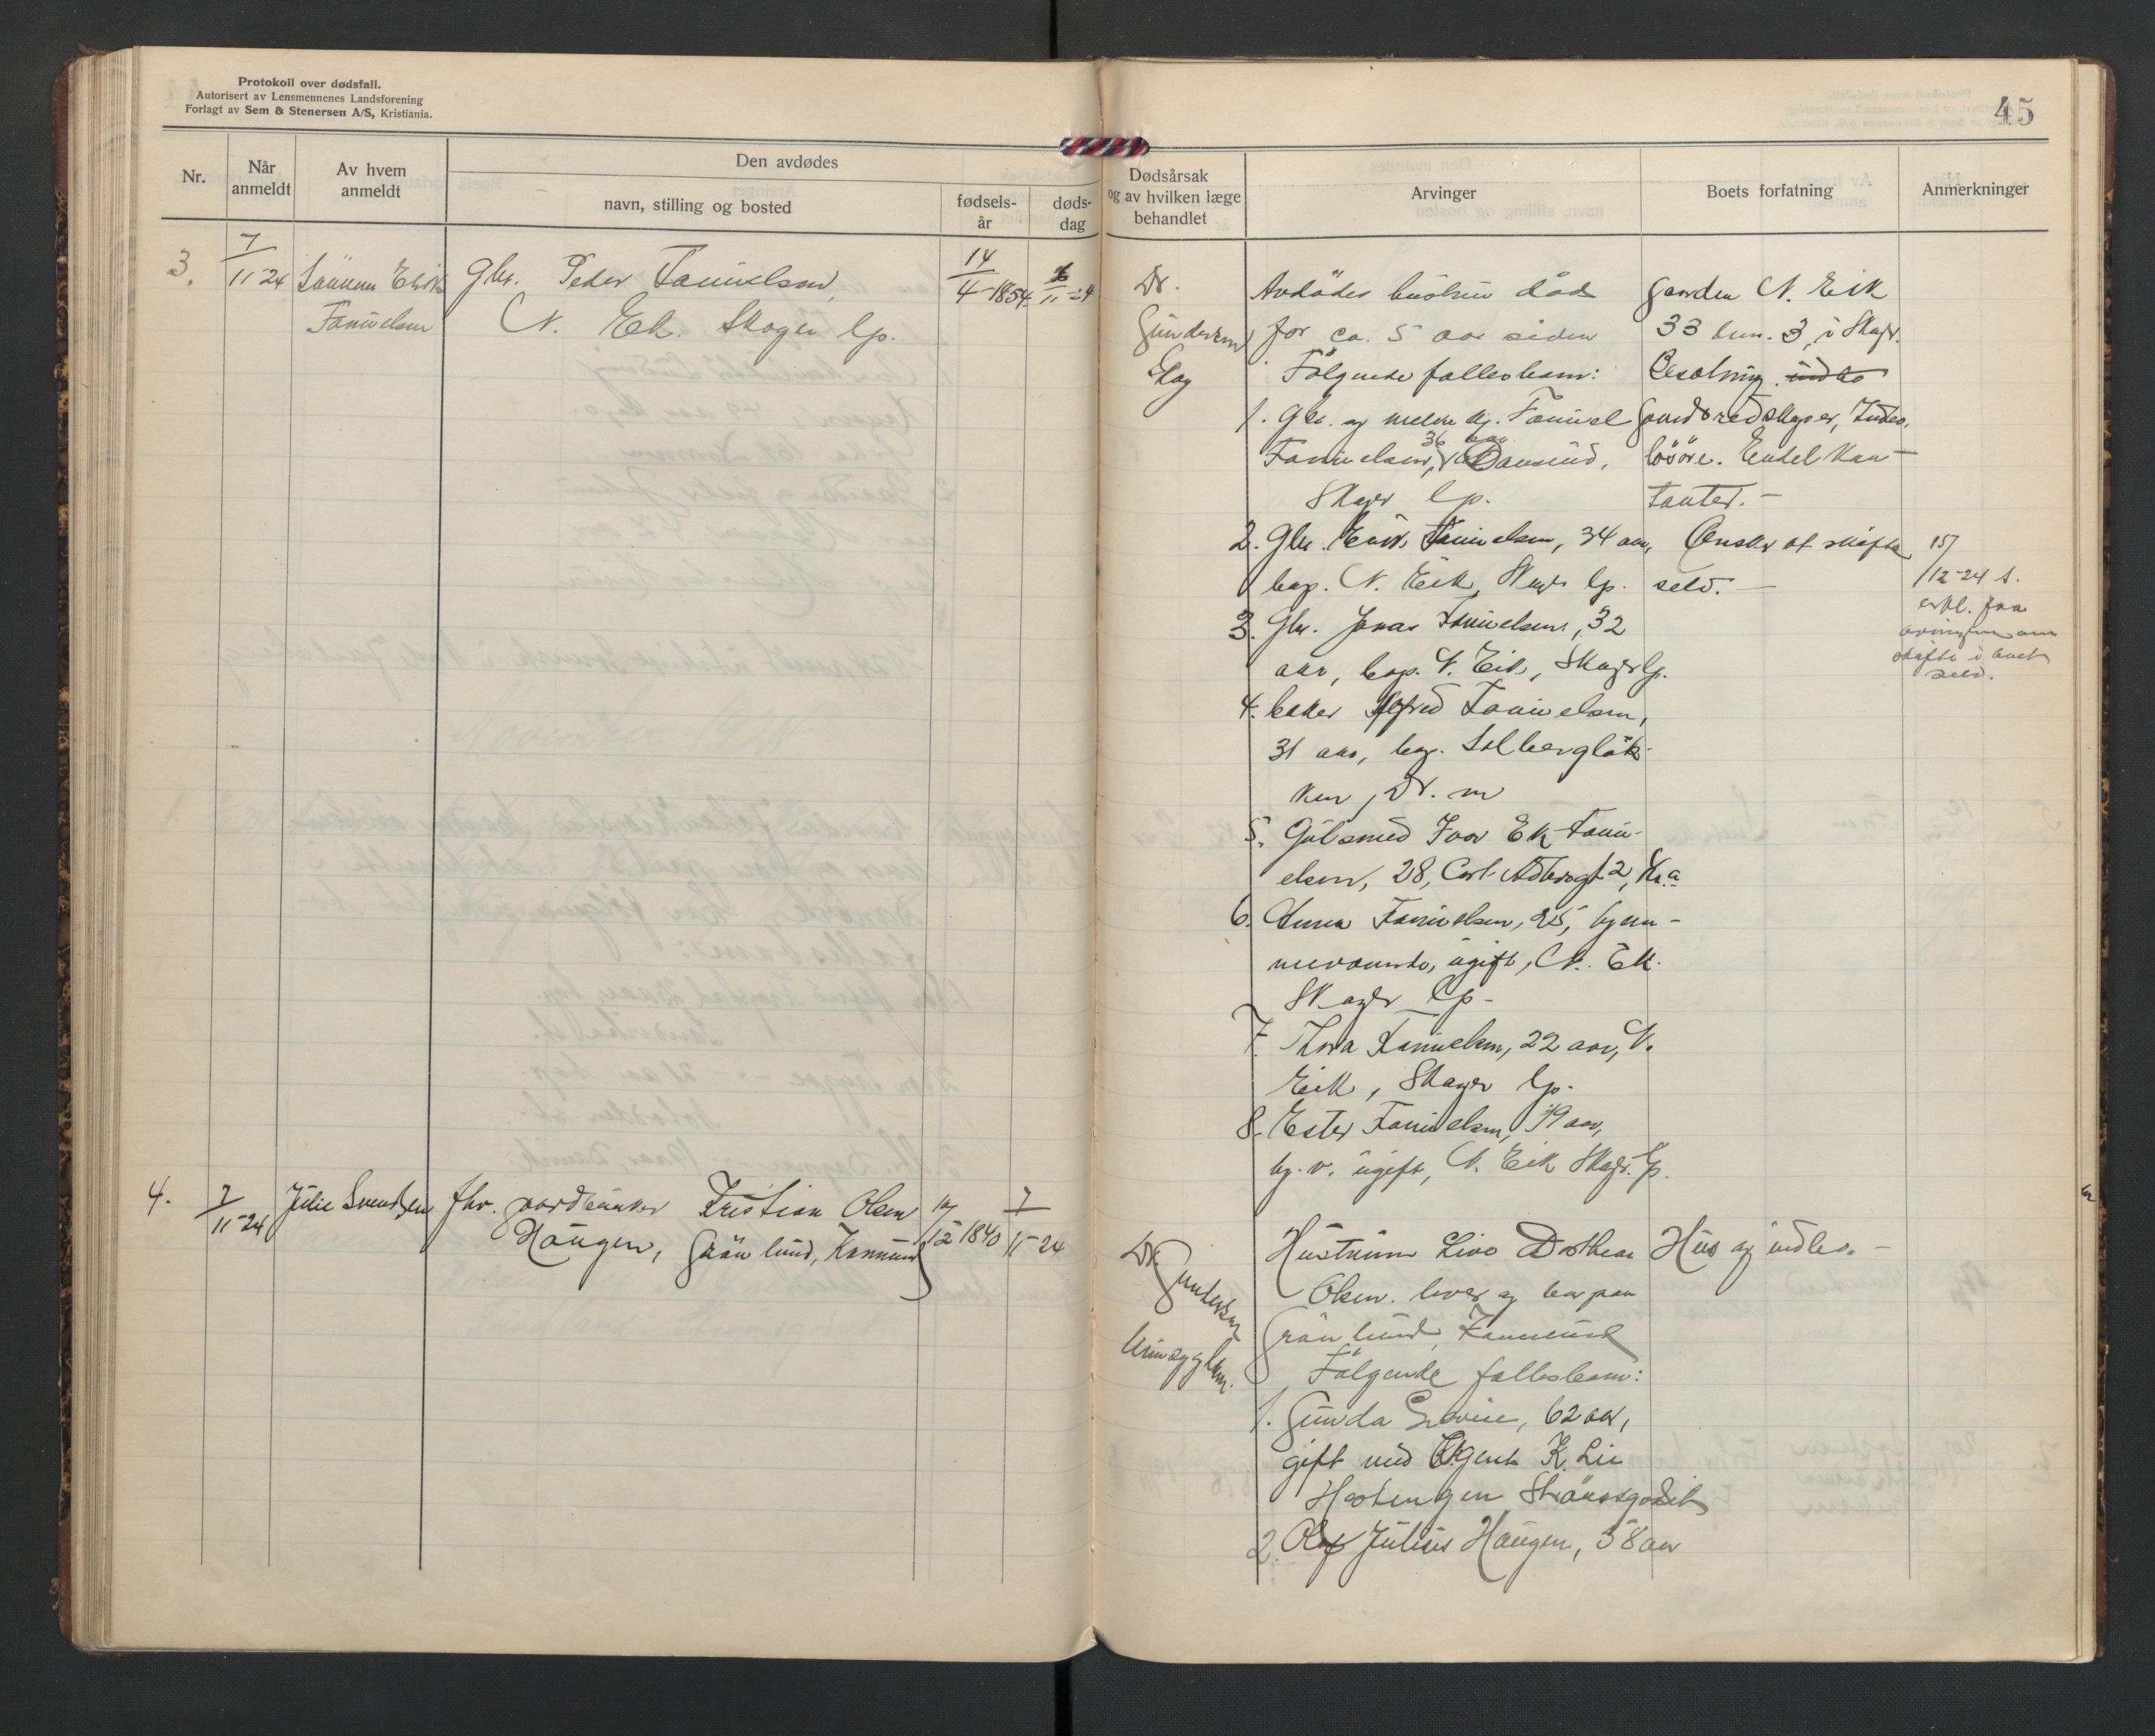 Protokoll over dødsfall.
Autorisert av Lensmennenes Landsforening
Forlagt av Sem & Stenersen A/S, Kristiania.
45
Nr.
Når anmeldt
Av hvem anmeldt
Den avdødes
navn, stilling og bosted
fødsels-år
døds-dag
Dødsårsak og av hvilken læge behandlet
Arvinger
Boets forfatning
Anmerkninger
3.
7/11-24
Sønnen Erik
Fanuelsen
Gbr. Peder Fanuelsen,
N. Ek. Skoger lp.
14/4-1854
6/11-24
Dr.
Gundersen
Avdødes hustru død
for ca. 5 aar siden
Følgende fællesbarn:
1. Gbr. og Fanuel
Fanuelsen, 36 aar
Skoger lp.
2. Gbr. Erik Fanuelsen, 34 aar,
bop. N. Eik, Skoger lp.
3. Gbr. Jonas Fanuelsen, 32
aar, bop. N. Eik, Skoger lp.
4. baker Alfred Fanuelsen,
31 aar, bop. Solbergløk-
ken, Dr. m
5. Gulsmed Ivar Ek Fanu-
elsen, 28, Carl 2, Kr.a
6. Anna Fanuelsen, 25, hjem-
meværende, ugift, N. Ek.
Skoger lp-
7. Thora Fanuelsen, 22 aar, N.
Eik, Skoger lp.
8. Ester Fanuelsen, 19 aar,
hj. v. ugift, N. Eik Skoger lp.
Garden N. Eik
33 bnr. 3, i Skogr.
Besætning. indbo
Gaardsredskaper, Indbo,
løsøre. Endel Kon-
tanter. -
Ønsker at skifte
selv. -
15/12-24 s.
erkl. fra
arvingene om
skifte i boet
selv.
4.
7/11-24
Julie Svendsen
fhv. jordbruker Kristian Olsen
Haugen, Grønlund, Konnerud
10/12 1840
7/11-24
Dr.
Gundersen
Hustruen Live Dorthea
Olsen. lever og bor paa
Grønlund, Konnerud
Følgende fællesbarn:
1. Gunda Lovise, 62 aar,
gift med Agent K. Lie
Hestengen Strømsgodset
2. Olaf Julius Haugen, 58 aar
Hus og indbo. -